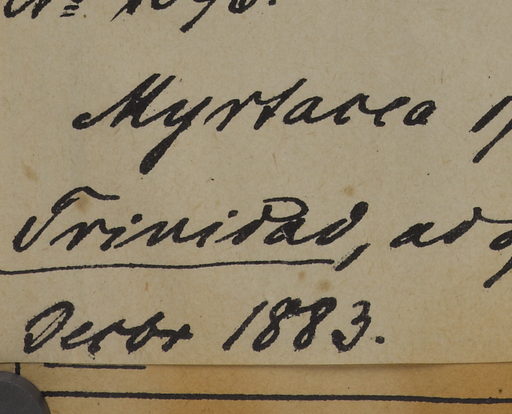 Myrtacea
Trinidad, ad
Decbr 1883.